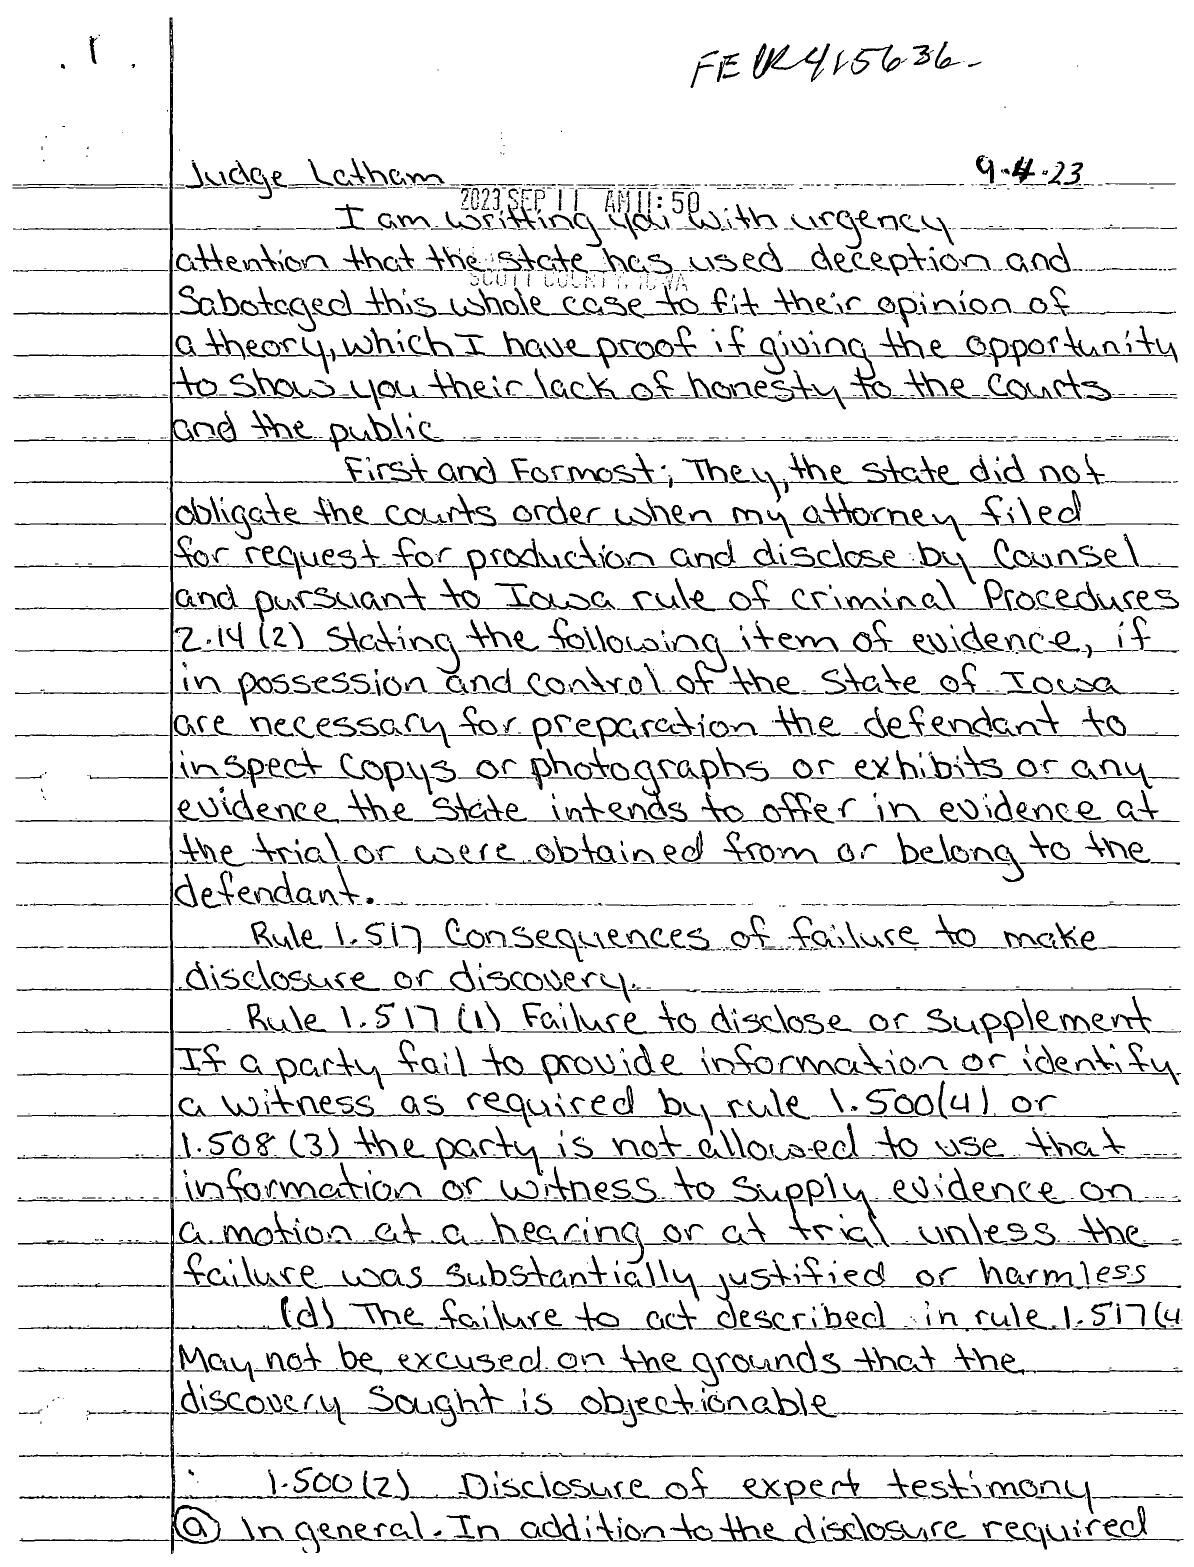 1
FECR415636
Judge Latham 9.4.23
2023 SEP 11 AM 11:50
I am writting you with urgency
attention that the state has used deception and
SCOTT COUNTY, IOWA
Sabotaged this whole case to fit their opinion of
a theory, which I have proof if giving the opportunity
to show you their lack of honesty to the Courts
and the public
First and Formost; They, the state did not
obligate the courts order when my attorney filed
for request for production and disclose by Counsel
and pursuant to Iowa rule of criminal Procedures
2.14(2) stating the following item of evidence, if
in possession and control of the State of Iowa
are necessary for preparation the defendant to
inspect Copys or photographs or exhibits or any
evidence the State intends to offer in evidence at
the trial or were obtained from or belong to the
defendant.
Rule 1.517 Consequences of failure to make
disclosure or discovery.
Rule 1.517 (1) Failure to disclose or supplement
If a party fail to provide information or identify
a witness as required by rule 1.500(4) or
1.508 (3) the party is not allowed to use that
information or witness to supply evidence on
a motion at a hearing or at trial unless the
failure was substantially justified or harmless
(d) The failure to act described in rule 1.517(4
May not be excused on the grounds that the
discovery Sought is objectionable
1.500(2) Disclosure of expert testimony
(a) In general. In addition to the disclosure required